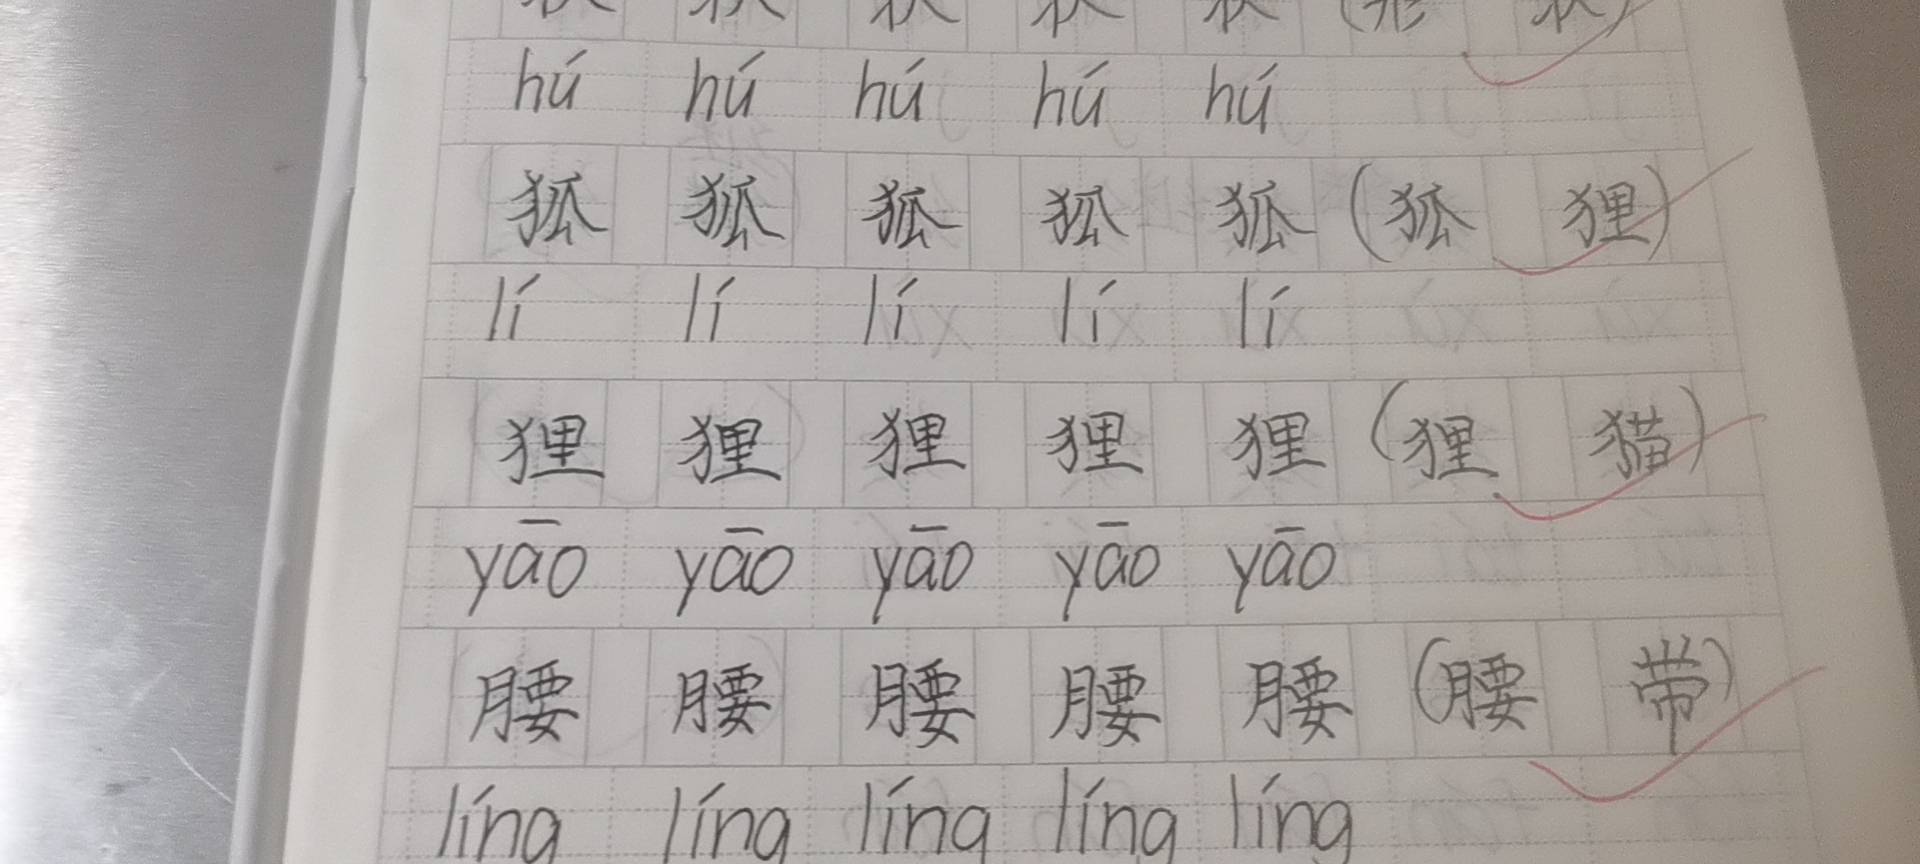 状 状 状 状 状 (形 状)
hú hú hú hú hú
狐 狐 狐 狐 狐 (狐 狸)
lí lí lí lí lí
狸 狸 狸 狸 狸 (狸 猫)
yāo yāo yāo yāo yāo
腰 腰 腰 腰 腰 (腰 带)
líng líng líng líng líng